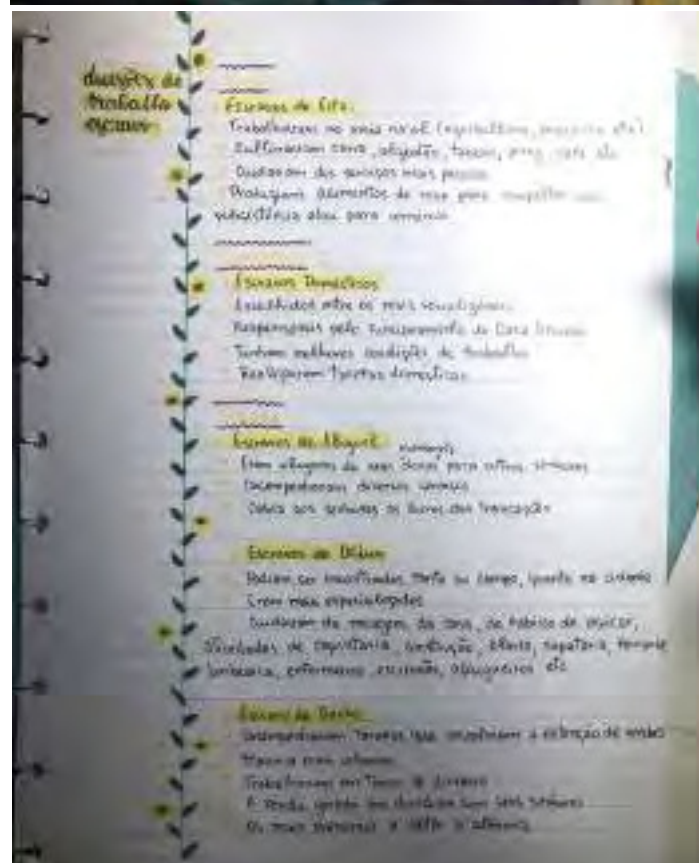 divisões do
trabalho
escravo
Escravos de Eito:
Trabalhavam no meio rural (agricultura, pecuária etc)
Cultivavam cana, algodão, tabaco, café etc
Cuidavam dos serviços mais pesados
Produziam alimentos de para
subsistência e/ou para comércio
Escravos Domésticos
Escolhidos entre os mais
Responsáveis pelo funcionamento da Casa Grande
Tinham melhores condições de trabalho
Realizavam tarefas domésticas
Escravos de Aluguel
Eram de seus donos para outros senhores
Desempenhavam diversos serviços
Cabia aos senhores os lucros das transação
Escravos de Ofício
Podiam ser encontrados tanto no campo, quanto na cidade
Eram mais especializados
Cuidavam da moagem da cana, do fabrico de açúcar,
atividades de carpintaria, construção, olaria, sapataria,
enfermeiros, etc
Escravos de Ganho
Desempenhavam tarefas que envolviam a obtenção de renda
mais urbano
Trabalhavam em troca de dinheiro
A renda com seus senhores
Os mais a alforria